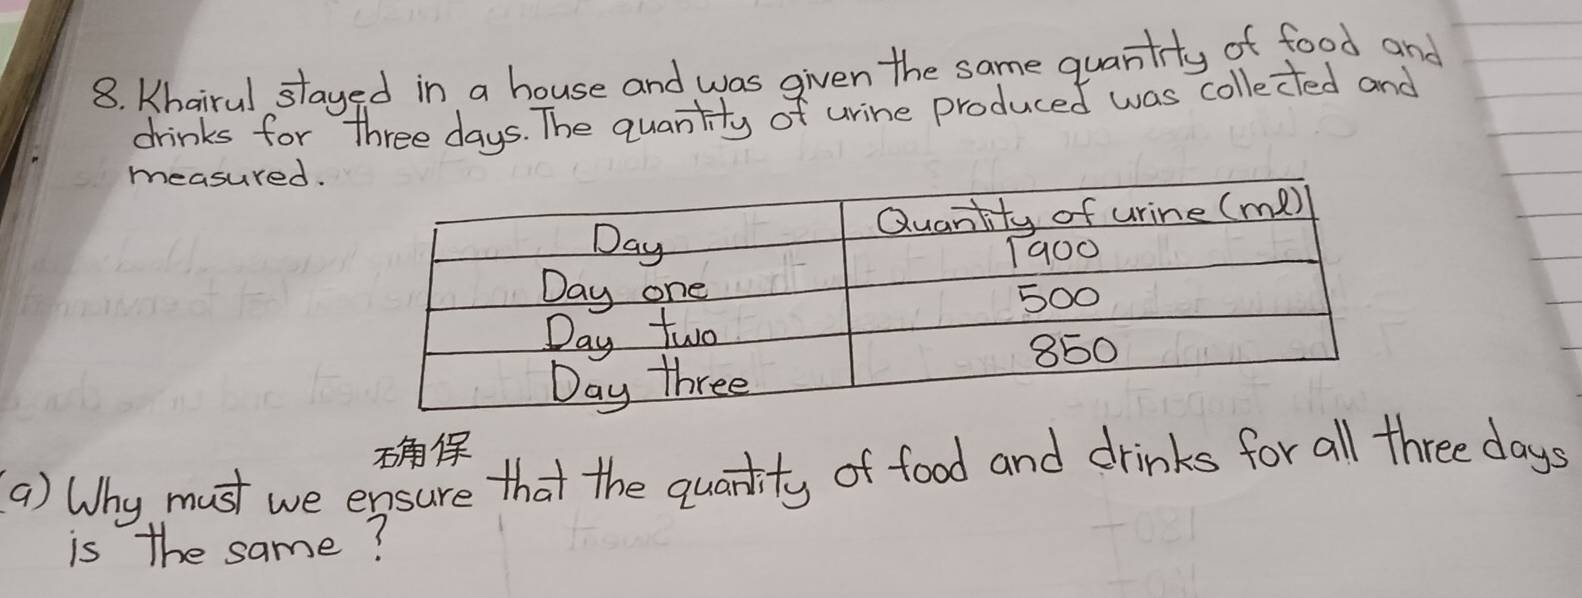 8. Khairul stayed in a house and was given the same quantity of food and
drinks for three days. The quantity of urine produced was collected and
measured.
Day Quantity of urine (ml)
Day one 1900
Day two 500
Day three 850
确保
(a) Why must we ensure that the quantity of food and drinks for all three days
is the same?